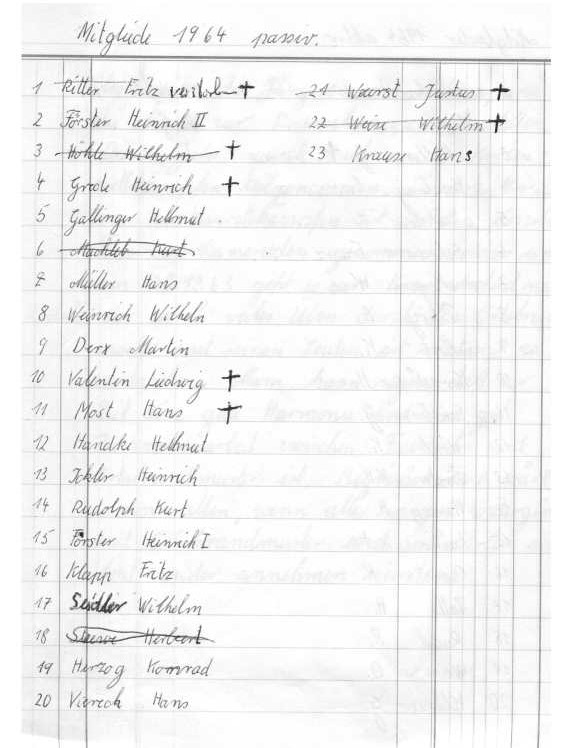 Mitglieder 1964 passiv.
1 Ritter Fritz verstorben †
2 Förster Heinrich II
3 Höhle Wilhelm †
4 Grede Heinrich †
5 Gallinger Hellmut.
6 Kurt
7 Müller Hans
8 Weinrich Wilhelm
9 Derx Martin
10 Valentin Ludwig †
11 Most Hans †
12 Handke Hellmut
13 Ickler Heinrich
14 Rudolph Kurt
15 Förster Heinrich I
16 Klapp Fritz
17 Seidler Wilhelm
18 Herbert
19 Herzog Konrad
20 Viereck Hans
21 Wurst Justus †
22 Weise Wilhelm †
23 Krause Hans